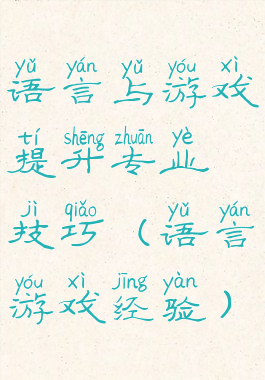 yǔ yán yǔ yóu xì
语言与游戏
tí shēng zhuān yè
提升专业
jì qiǎo yǔ yán
技巧（语言
yóu xì jīng yàn
游戏经验）